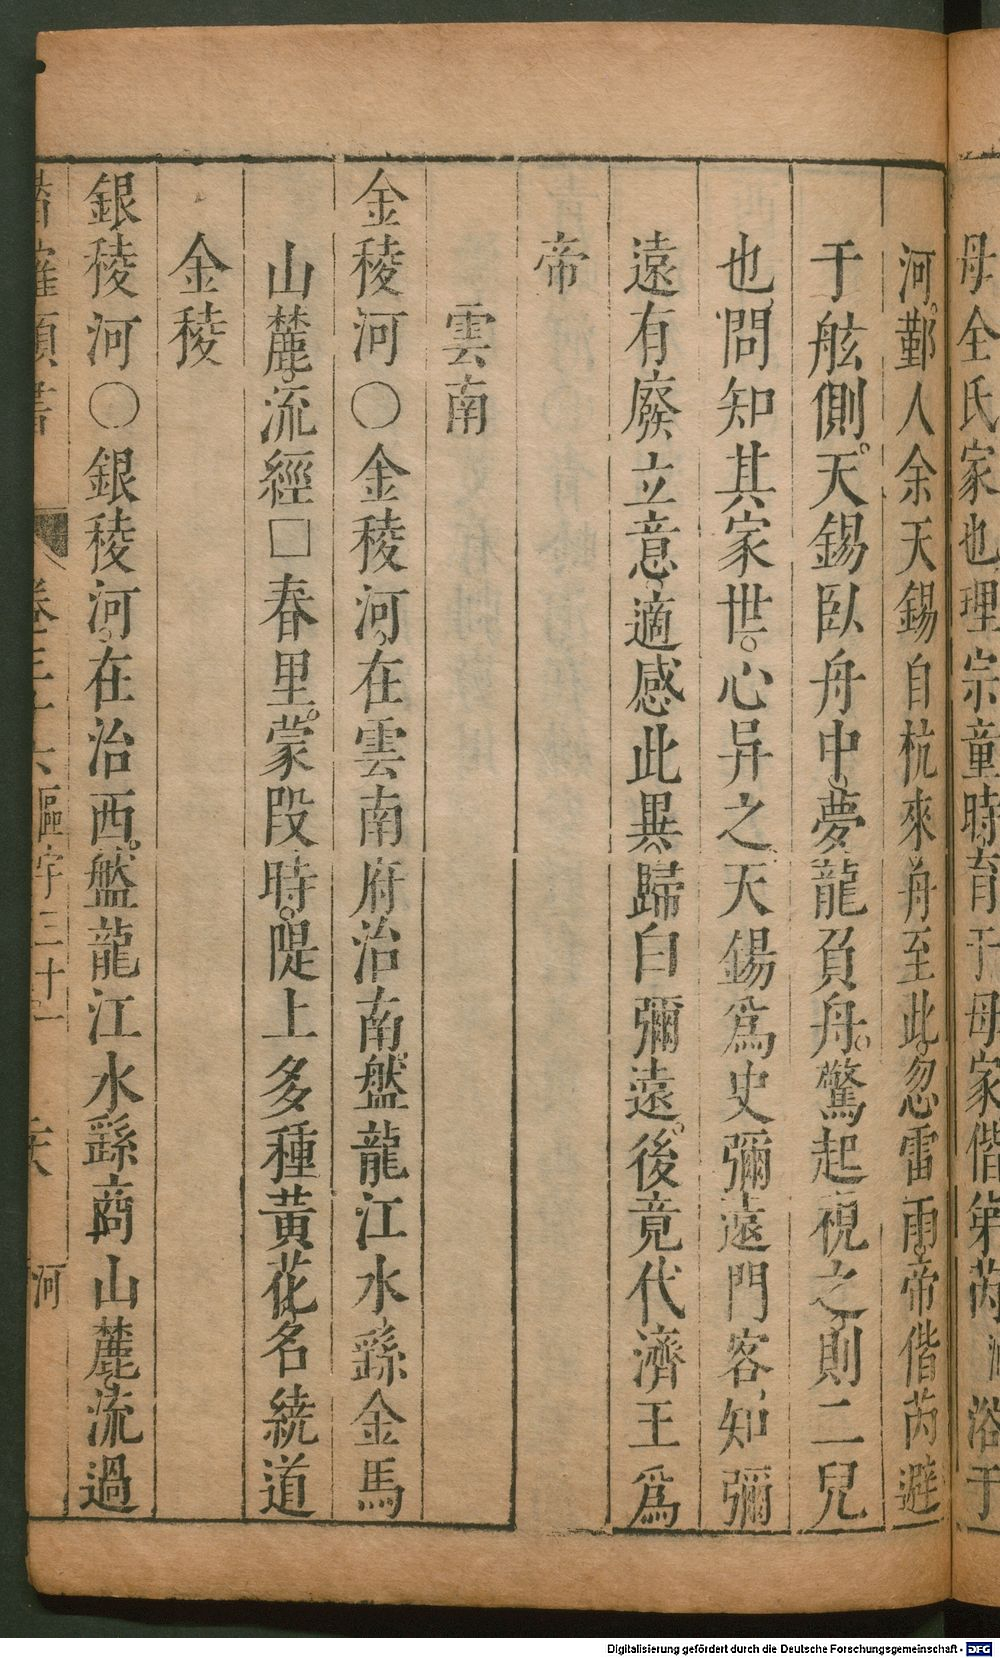 母全氏家也理宗童時育于母家偕弟芮浴于
河。鄞人余天錫自杭來舟至此忽雷雨帝偕芮避
于舷側。天錫臥舟中夢龍負舟。驚起視之則二兒
也問知其家世。心异之天錫爲史彌遠門客知彌
遠有廢立意適感此異歸白彌遠。後竟代濟王爲
帝
雲南
金稜河○金稜河在雲南府治南盤龍江水繇金馬
山麓流經□春里。蒙段時。隄上多種黃花名繞道
金稜
銀稜河○銀稜河。在治西。盤龍江水繇商山麓流過
潛確類書 卷三十六 區宇三十一 河
Digitalisierung gefördert durch die Deutsche Forschungsgemeinschaft - DFG